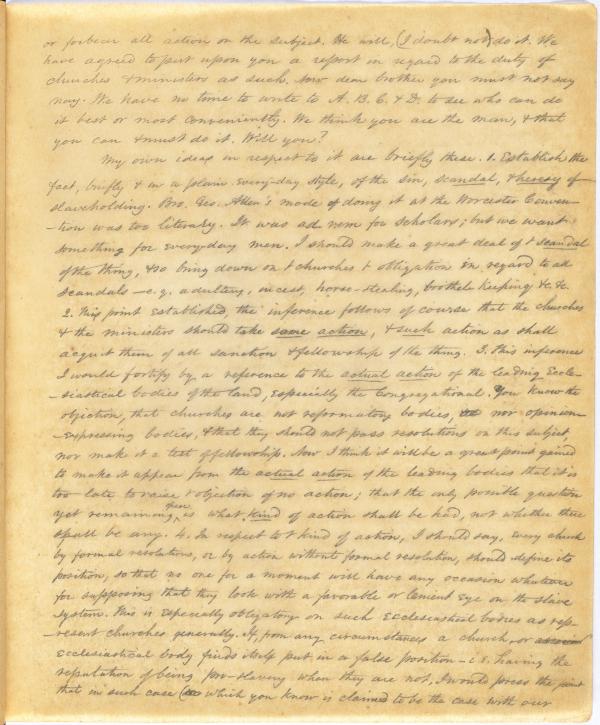 or forbear all action on the subject. He will, (I doubt not) do it. We
have agreed to put upon you a report in regard to the duty of
churches & ministers as such. Now dear brother you must not say
nay. We have no time to write to A. B. C. & D. to see who can do
it best or most conveniently. We think you are the man, & that
you can & must do it. Will you?
My own ideas in respect to it are briefly these. 1. Establish the
fact, briefly & in a plain every-day style, of the sin, scandal, & heresy of
slaveholding. Bro. Geo. Allen's mode of doing it at the Worcester Conven-
-tion was too literary. It was ad rem for scholars; but we want
something for every-day men. I should make a great deal of t scandal
of the thing, & so bring down on t churches t obligation in regard to all
scandals - e.g. adultery, incest, horse-stealing, brothel keeping &c &c.
2. This point established, the inference follows of course that the churches
& the ministers should take some action, & such action as shall
acquit them of all sanction & fellowship of the thing. 3. This inference
I would fortify by a reference to the actual action of the leading Eccle-
-siastical bodies of the land, especially the Congregational. You know the
objection, that churches are not reformatory bodies, nor opinion-
-expressing bodies, & that they should not pass resolutions on this subject,
nor make it a test of fellowship. Now I think it will be a great point gained
to make it appear from the actual action of the leading bodies that it is
too late to raise t objection of no action; that the only possible question
yet remaining, then, is what kind of action shall be had, not whether there
shall be any. 4. In respect to t kind of action, I should say, every church
by formal resolutions, or by action without formal resolution, should define its
position, so that no one for a moment will have any occasion whatever
for supposing that they look with a favorable or lenient eye on the slave
system. This is especially obligatory on such Ecclesiastical bodies as rep-
-resent churches generally. If, from any circumstances a church, or
Ecclesiastical body finds itself put in a false position - i.e. having the
reputation of being pro-slavery when they are not, I would press the point
that in such case (which you know is claimed to be the case with our